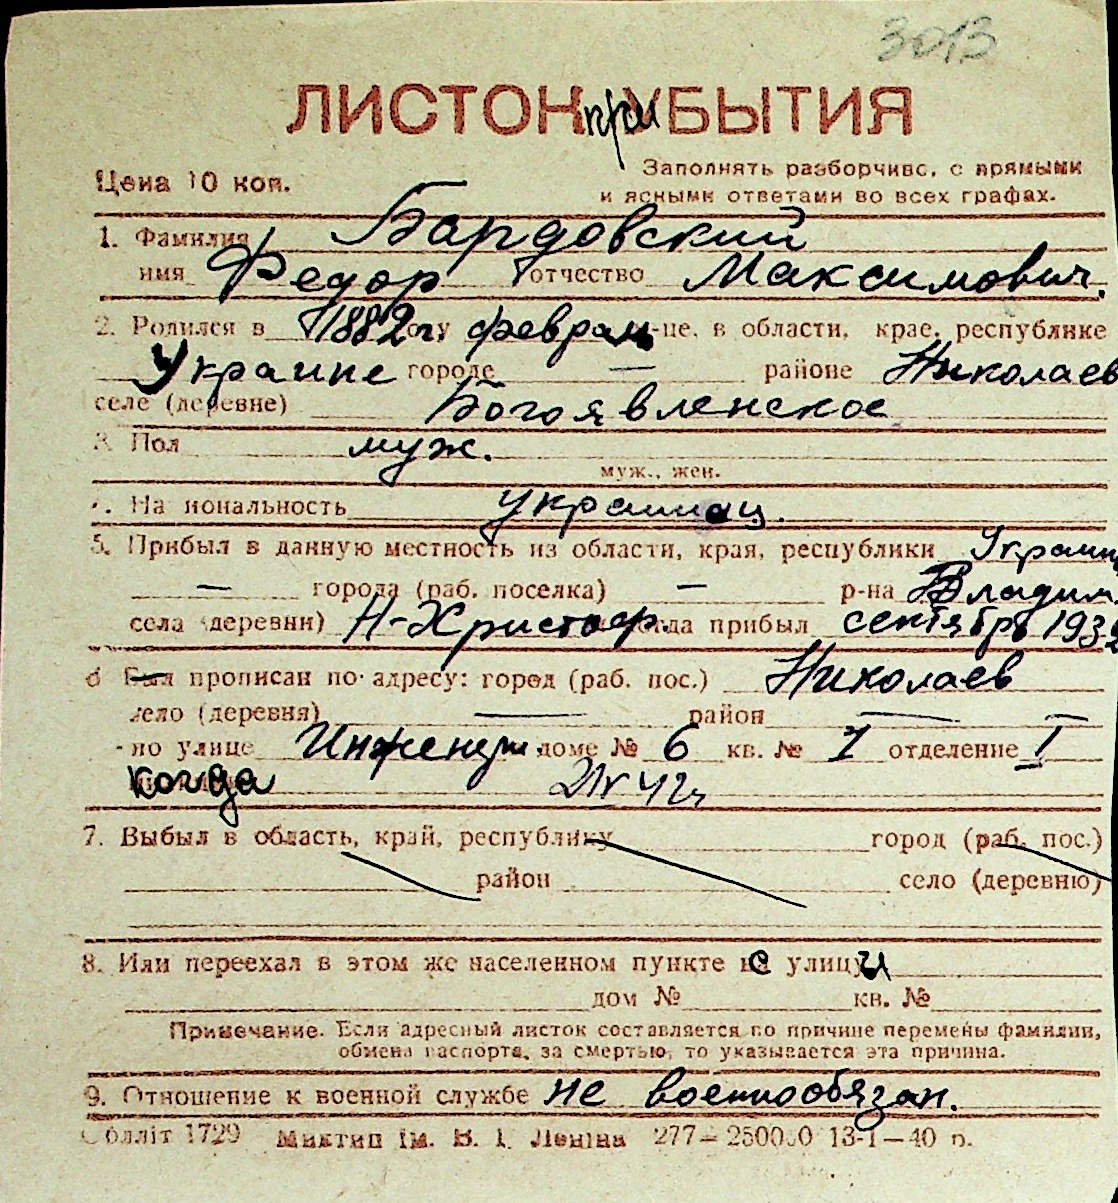 3013
ЛИСТОК приБЫТИЯ
Цена 10 коп.
Заполнять разборчиво, с прямыми
и ясными ответами во всех графах.
1. Фамилия Бардовский
имя Федор отчество Максимович.
2. Родился в 1882 г. феврал м-це, в области, крае, республике
Украине городе — районе Николаев
селе (деревне) Богоявленское
3. Пол муж.
муж., жен.
4. Национальность украинец.
5. Прибыл в данную местность из области, края, республики Украины
— города (раб. поселка) — р-на Владим.
села (деревни) Н-Христоф. когда прибыл сентябрь 1932
6 прописан по адресу: город (раб. пос.) Николаев
село (деревня) — район — —
по улице Инженерн. доме № 6 кв. № 1 отделение I
когда 42г
7. Выбыл в область, край, республику город (раб. пос.)
район село (деревню)
8. Или переехал в этом же населенном пункте с улицы
дом № кв. №
Примечание. Если адресный листок составляется по причине перемены фамилии,
обмена паспорта, за смертью, то указывается эта причина.
9. Отношение к военной службе не военнообязан.
Облліт 1729 Миктип ім. В. І. Леніна 277—250000 13-I—40 р.